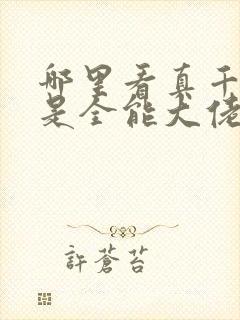 哪里看真千
是全能大佬
許蒼苔